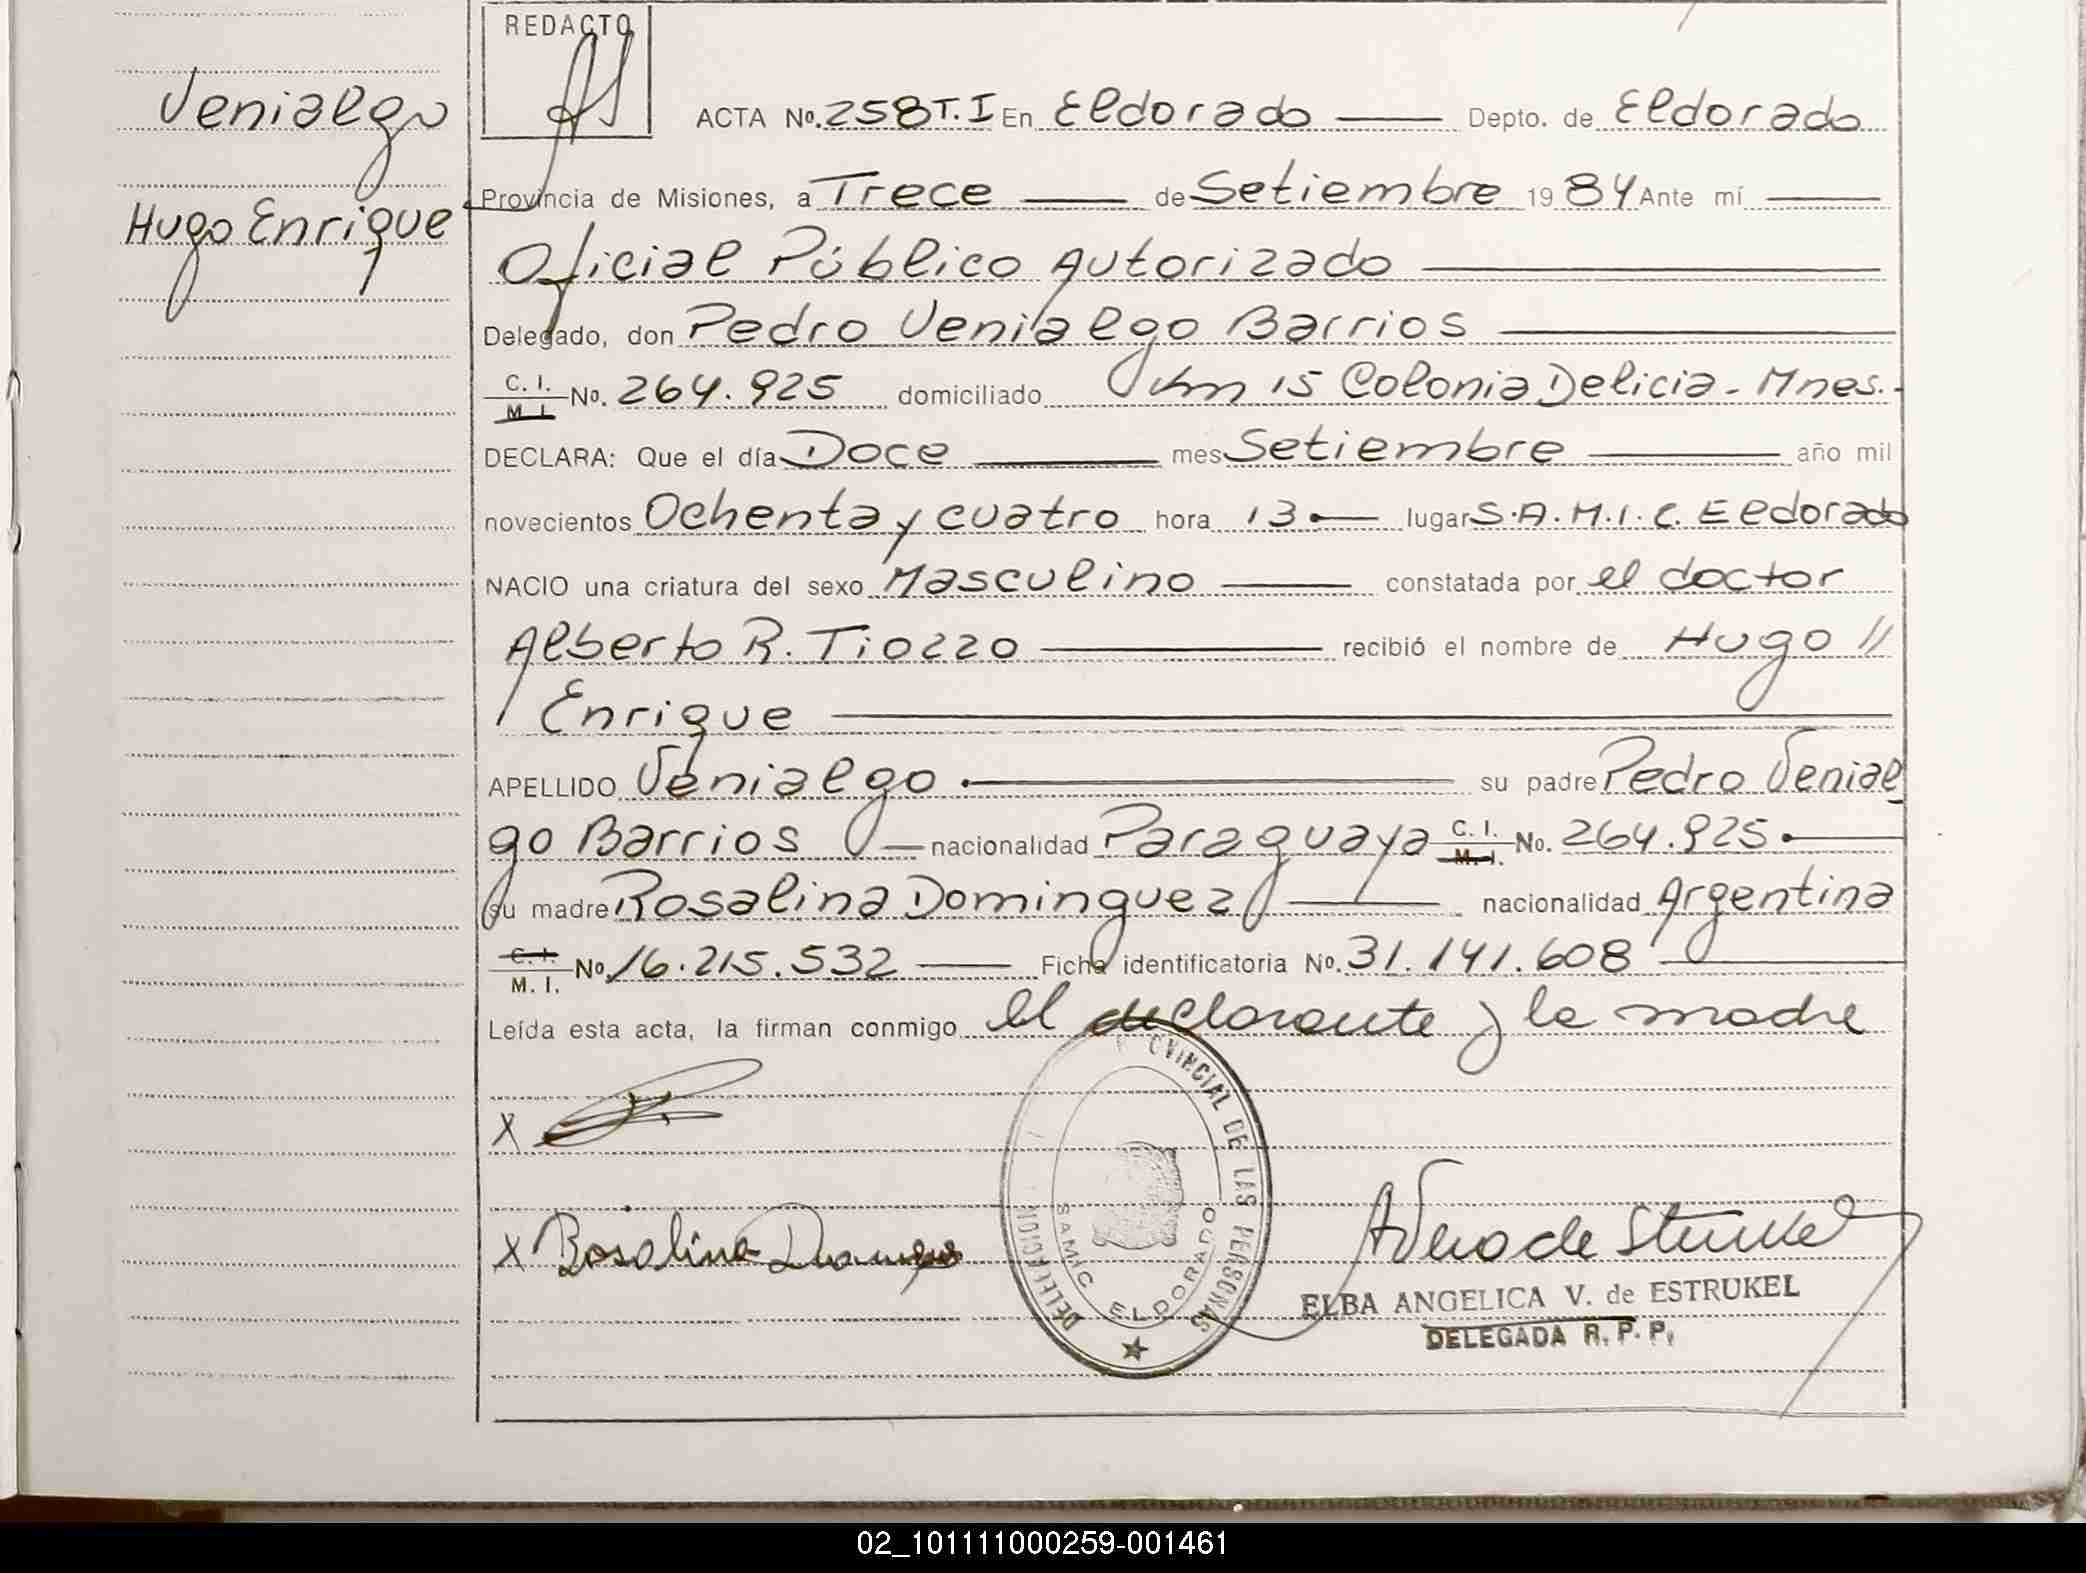 REDACTO
Venialgo
Hugo Enrique
ACTA No. 258 T.I En Eldorado Depto. de Eldorado
Provincia de Misiones, a Trece de Setiembre 1984 Ante mí
Oficial Público Autorizado
Delegado, don Pedro Venialgo Barrios
C. I. M. I. No. 264.925 domiciliado Km 15 Colonia Delicia - Mnes.-
DECLARA: Que el día Doce mes Setiembre año mil
novecientos Ochenta y cuatro hora 13 lugar S.A.M.I.C. Eldorado
NACIO una criatura del sexo Masculino constatada por el doctor
Alberto R. Tiozzo recibió el nombre de Hugo //
Enrique
APELLIDO Venialgo su padre Pedro Venial
go Barrios nacionalidad Paraguaya C. I. M. I. No. 264.925
su madre Rosalina Dominguez nacionalidad Argentina
C. I. M. I. No. 16.215.532 Ficha identificatoria No. 31.141.608
Leída esta acta, la firman conmigo el declarante y la madre
X
X Rosalina
VINCIAL DE LAS PERSONAS
SAMIC ELDORADO
ELBA ANGELICA V. de ESTRUKEL
DELEGADA R. P. P.
02_101111000259-001461